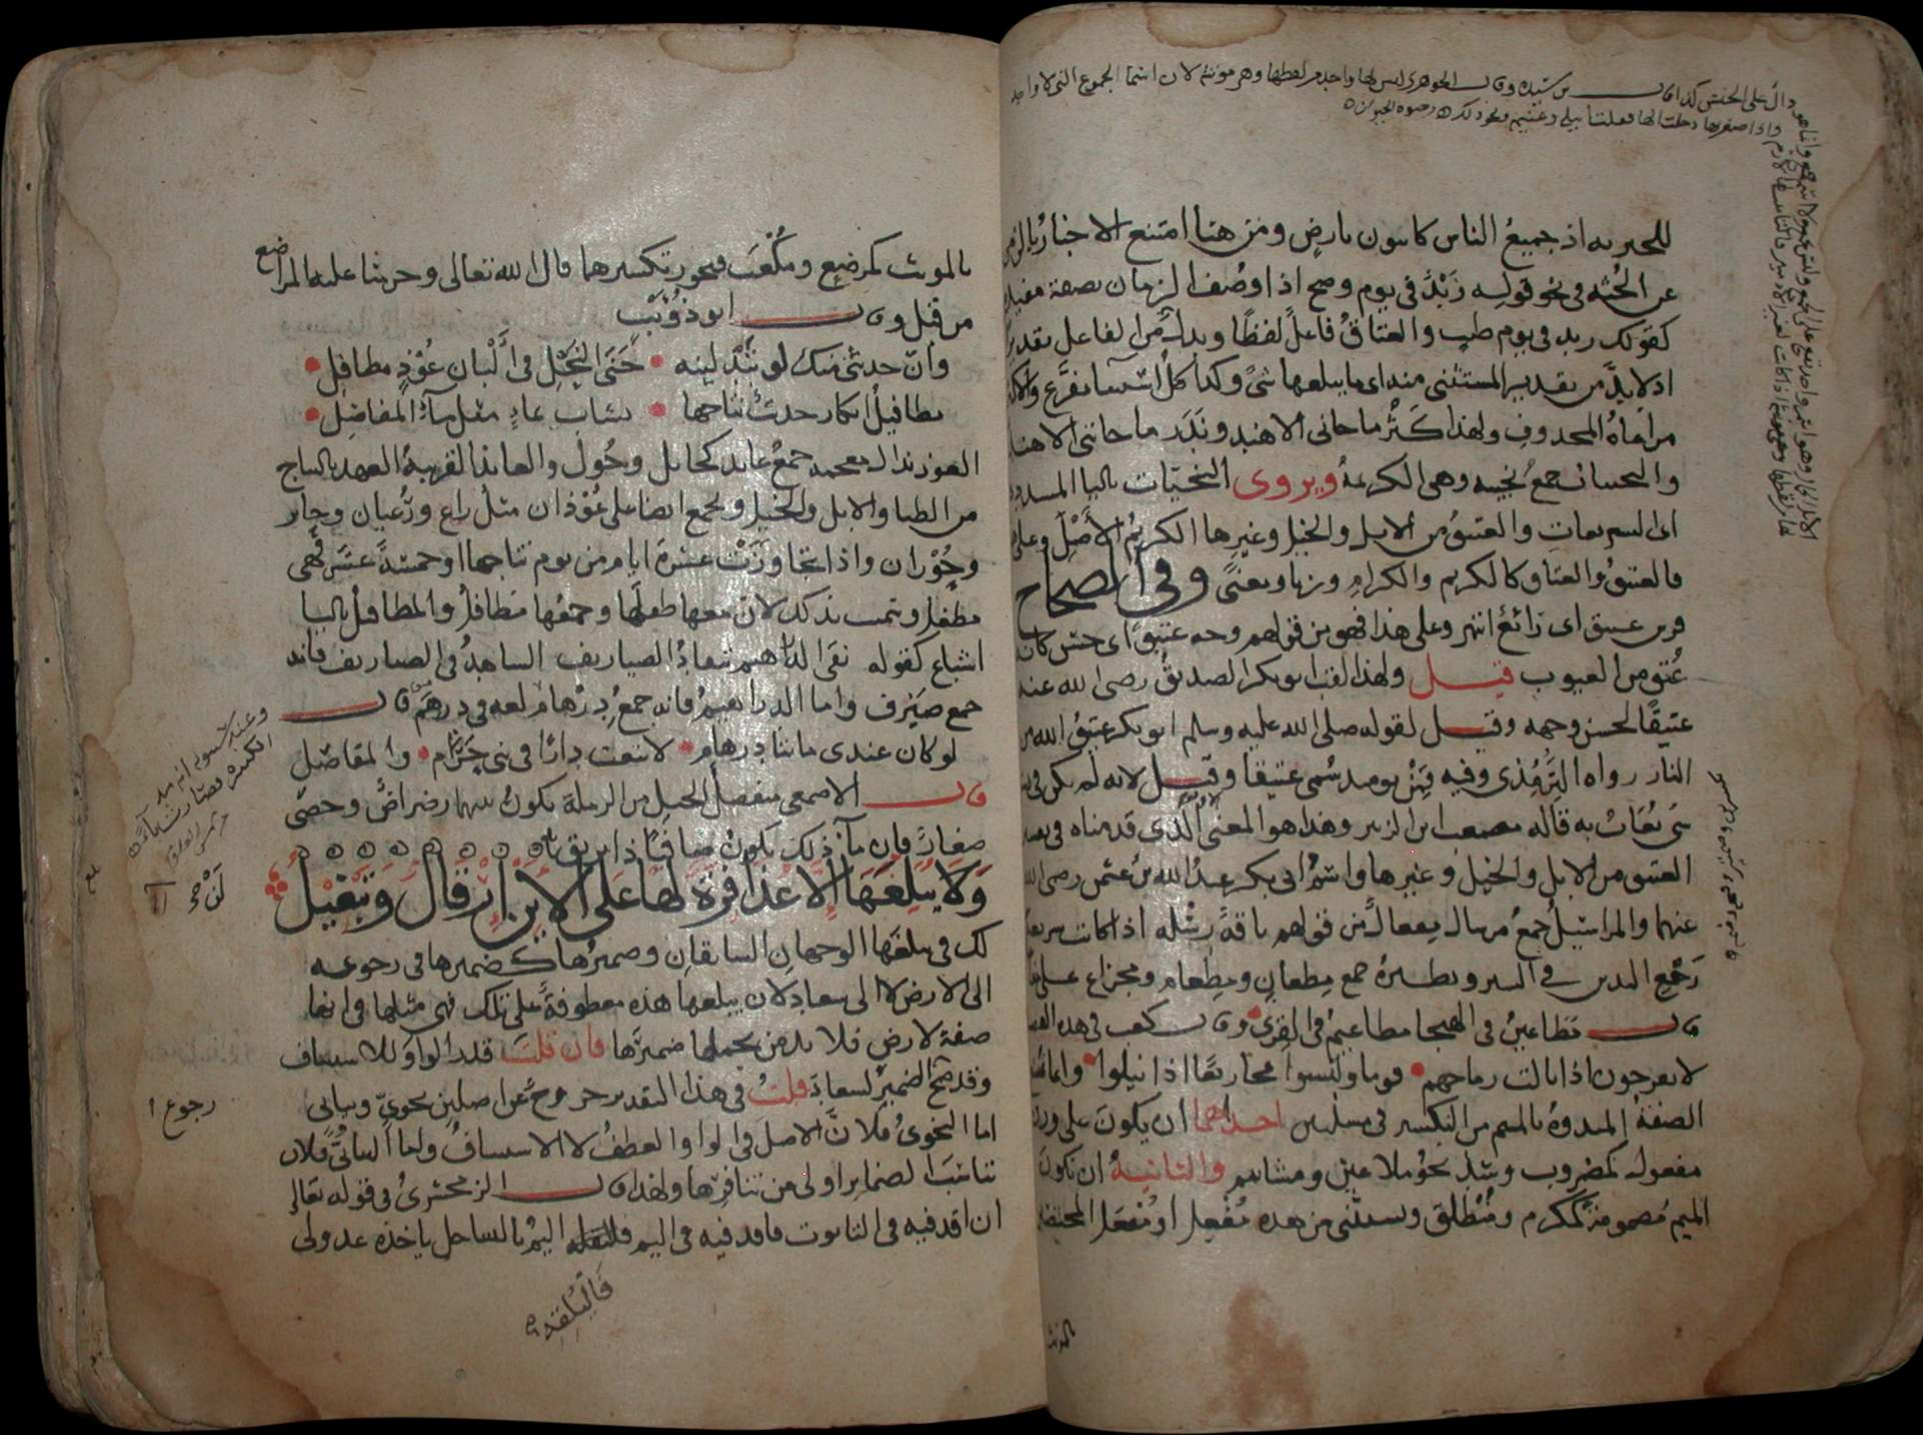 دال على الجنس كذا قال بن سيده وقال الجوهري ليس لها واحد من لفظها وهي مونثة لان اسما الجموع التي لا واحد
واذا صغرتها دخلت الها فقلت ابيلة وغنيمة ونحو ذلك
للخبر به اذ جميع الناس كاينون بارض ومن هنا امتنع الاخبار بالزمن
عن الجثة في نحو قولك زيد في يوم وصح اذا وصف الزمان بصفة مفيدة
كقولك زيد في يوم طيب والعتاق فاعل لفظا وبدل من الفاعل تقديرا
اذ لا بد من تقدير المستثنى منه اي ما يبلغها شي وكذا كل استثنا تفرغ والاكثر
مراعاة المحذوف ولهذا كثر ما جاني الا هند وندر ما جاتني الا هند
والنجيبات جمع نجيبة وهي الكريمة ويروى النجيات باليا المشددة
اي السريعات والعتيق من الابل والخيل وغيرها الكريم الاصل وعلى
فالعتيق والعتاق كالكريم والكرام وزنا ومعنى وفي الصحاح
فرس عتيق اي رائع انتهى وعلى هذا فهو من قولهم وجه عتيق اي حسن كانه
عتق من العيوب قيل ولهذا لقب ابو بكر الصديق رضي الله عنه
عتيقا لحسن وجهه وقيل لقوله صلى الله عليه وسلم ابو بكر عتيق الله من
النار رواه الترمذي وفيه فمن يومئذ سمي عتيقا وقيل لانه لم يكن في نسبه
شي يعاب به قاله مصعب ابن الزبير وهذا هو المعنى الذي قدمناه في تفسير
العتيق من الابل والخيل وغيرها واسم ابي بكر عبد الله بن عثمن رضي الله
عنهما والمراسيل جمع مرسال مفعال من قولهم ناقة رسلة اذا كانت سريعة
رجع اليدين في السير ونظيره جمع مطعان ومطعام ومجزاع على
قال مطاعين في الهيجا مطاعيم في القرى وقال كعب في هذه القصيدة
لا يفرحون اذا نالت رماحهم قوما وليسوا مجازيعا اذا نيلوا وانما
الصفة المبدوة بالميم من التكسير في مسلتين احداهما ان يكون على وزن
مفعول كمضروب وشذ نحو ملاعين ومشايم والثانية ان تكون
الميم مضمومة كمكرم ومنطلق ويستثنى من هذه مفعل او مفعل المختص
بالمونث
بالمونث كمرضع ومكعب فيجوز تكسيرهما قال الله تعالى وحرمنا عليه المراضع
من قبل وقال ابو ذويب
وان حديثا منك لو تبذلينه جنى النحل في البان عوذ مطافل
مطافيل ابكار حديث نتاجها يشاب بماء مثل ماء المفاصل
العوذ بذال معجمة جمع عايذ كحايل وحول والعايذ القريبة العهد بالنتاج
من الظبا والابل والخيل ويجمع ايضا على عوذان مثل راع ورعيان وحاير
وحوران واذا تجاوزت عشرة ايام من يوم نتاجها او خمسة عشر فهي
مطفل وسميت بذلك لان معها طفلها وجمعها مطافل والمطافيل باليا
اشباع كقوله نفي الدراهيم تنقاد الصياريف الشاهد في الصياريف فانه
جمع صيرف واما الدراهيم فانه جمع درهام لغة في درهم قال
لو كان عندي ماتا درهام لابتعت دارا في بني حرام والمفاصل
قال الاصمعي منفصل الجبل من الرملة يكون بينهما رضراض وحصى
صغار فان ماء ذلك يكون صافيا ذا بريق
ولا يبلغها الا عذافرة لها على الاين ارقال وتبغيل
لك في يبلغها الوجهان السابقان وضميرها كضميرها في رجوعه
الى الارض لا الى سعاد لان يبلغها هذه معطوفة على تلك فهي مثلها في انها
صفة لارض فلا بد من تحملها ضميرها فان قلت قدر الواو للاستيناف
وقد صح الضمير لسعاد قلت في هذا التقدير خروج عن اصلين نحوي وبياني
اما النحوي فلان الاصل في الواو العطف لا الاستيناف واما البياني فلان
تناسب الضماير اولى من تنافرها ولهذا قال الزمخشري في قوله تعالى
ان اقذفيه في التابوت فاقذفيه في اليم فليلقه اليم بالساحل ياخذه عدو لي
رجوع ا
فاليلقه